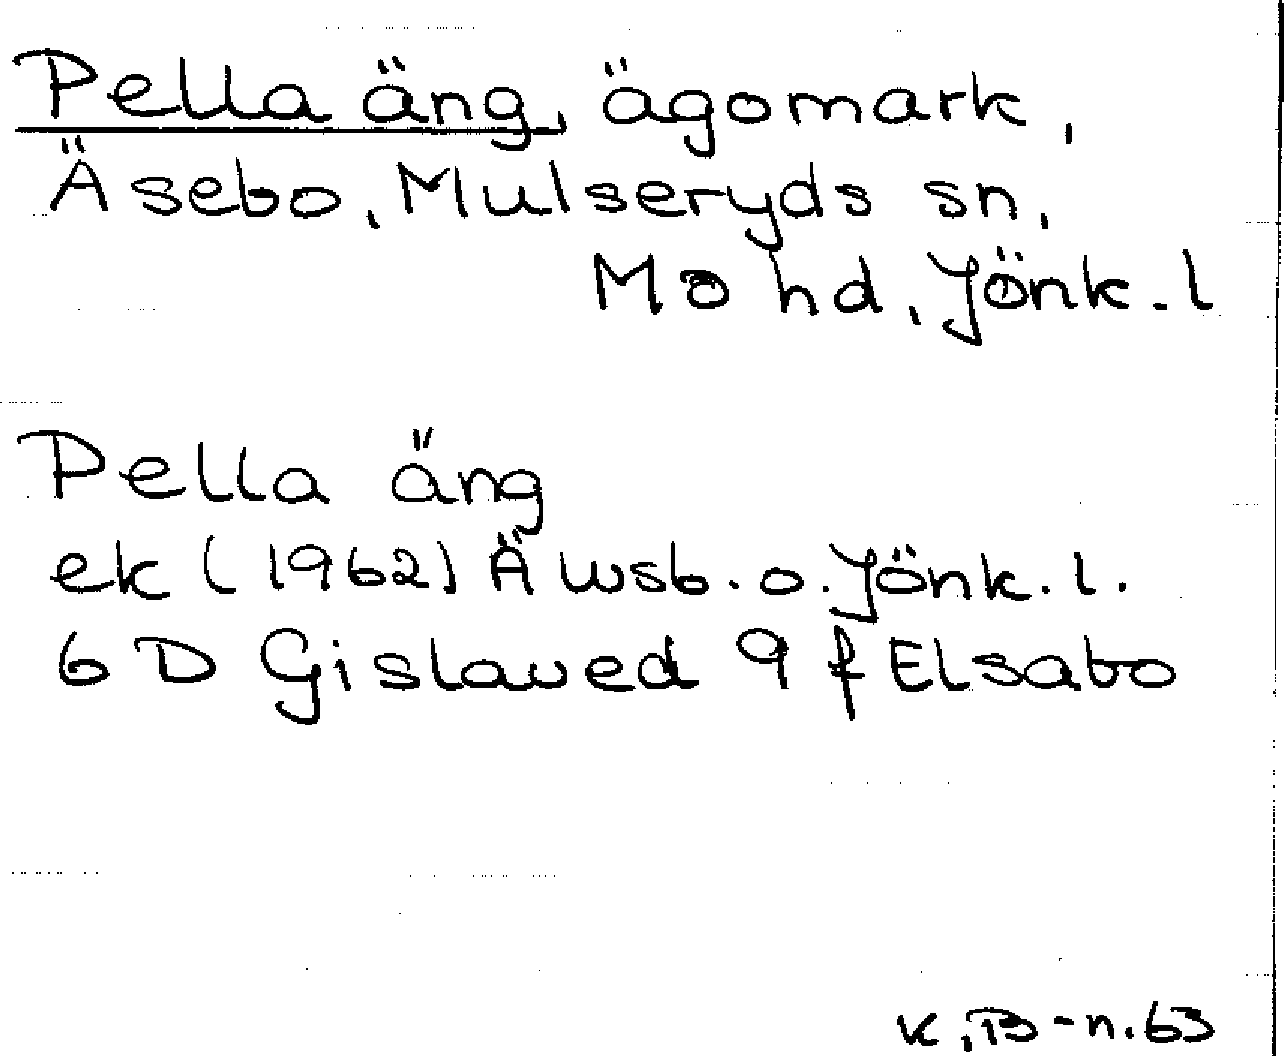 Pella äng, ägomark,
Äsebo, Mulseryds sn,
Mo hd, Jönk. l
Pella äng
ek (1962) Ä wsb. o. Jönk. l.
6 D Gislaved 9 f Elsabo
K, B-n. 63